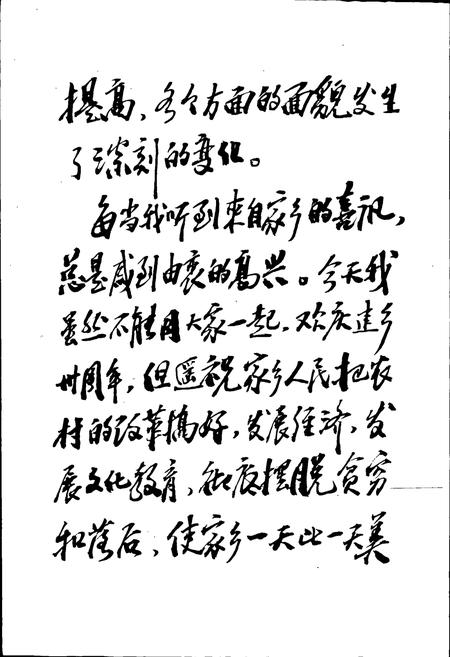 提高、各个方面的面貌发生
了深刻的变化。
每当我听到来自家乡的喜讯，
总是感到由衷的高兴。今天我
虽然不能同大家一起，欢庆建乡
卅周年，但遥祝家乡人民把农
村的改革搞好，发展经济，发
展文化教育，彻底摆脱贫穷
和落后、使家乡一天比一天美